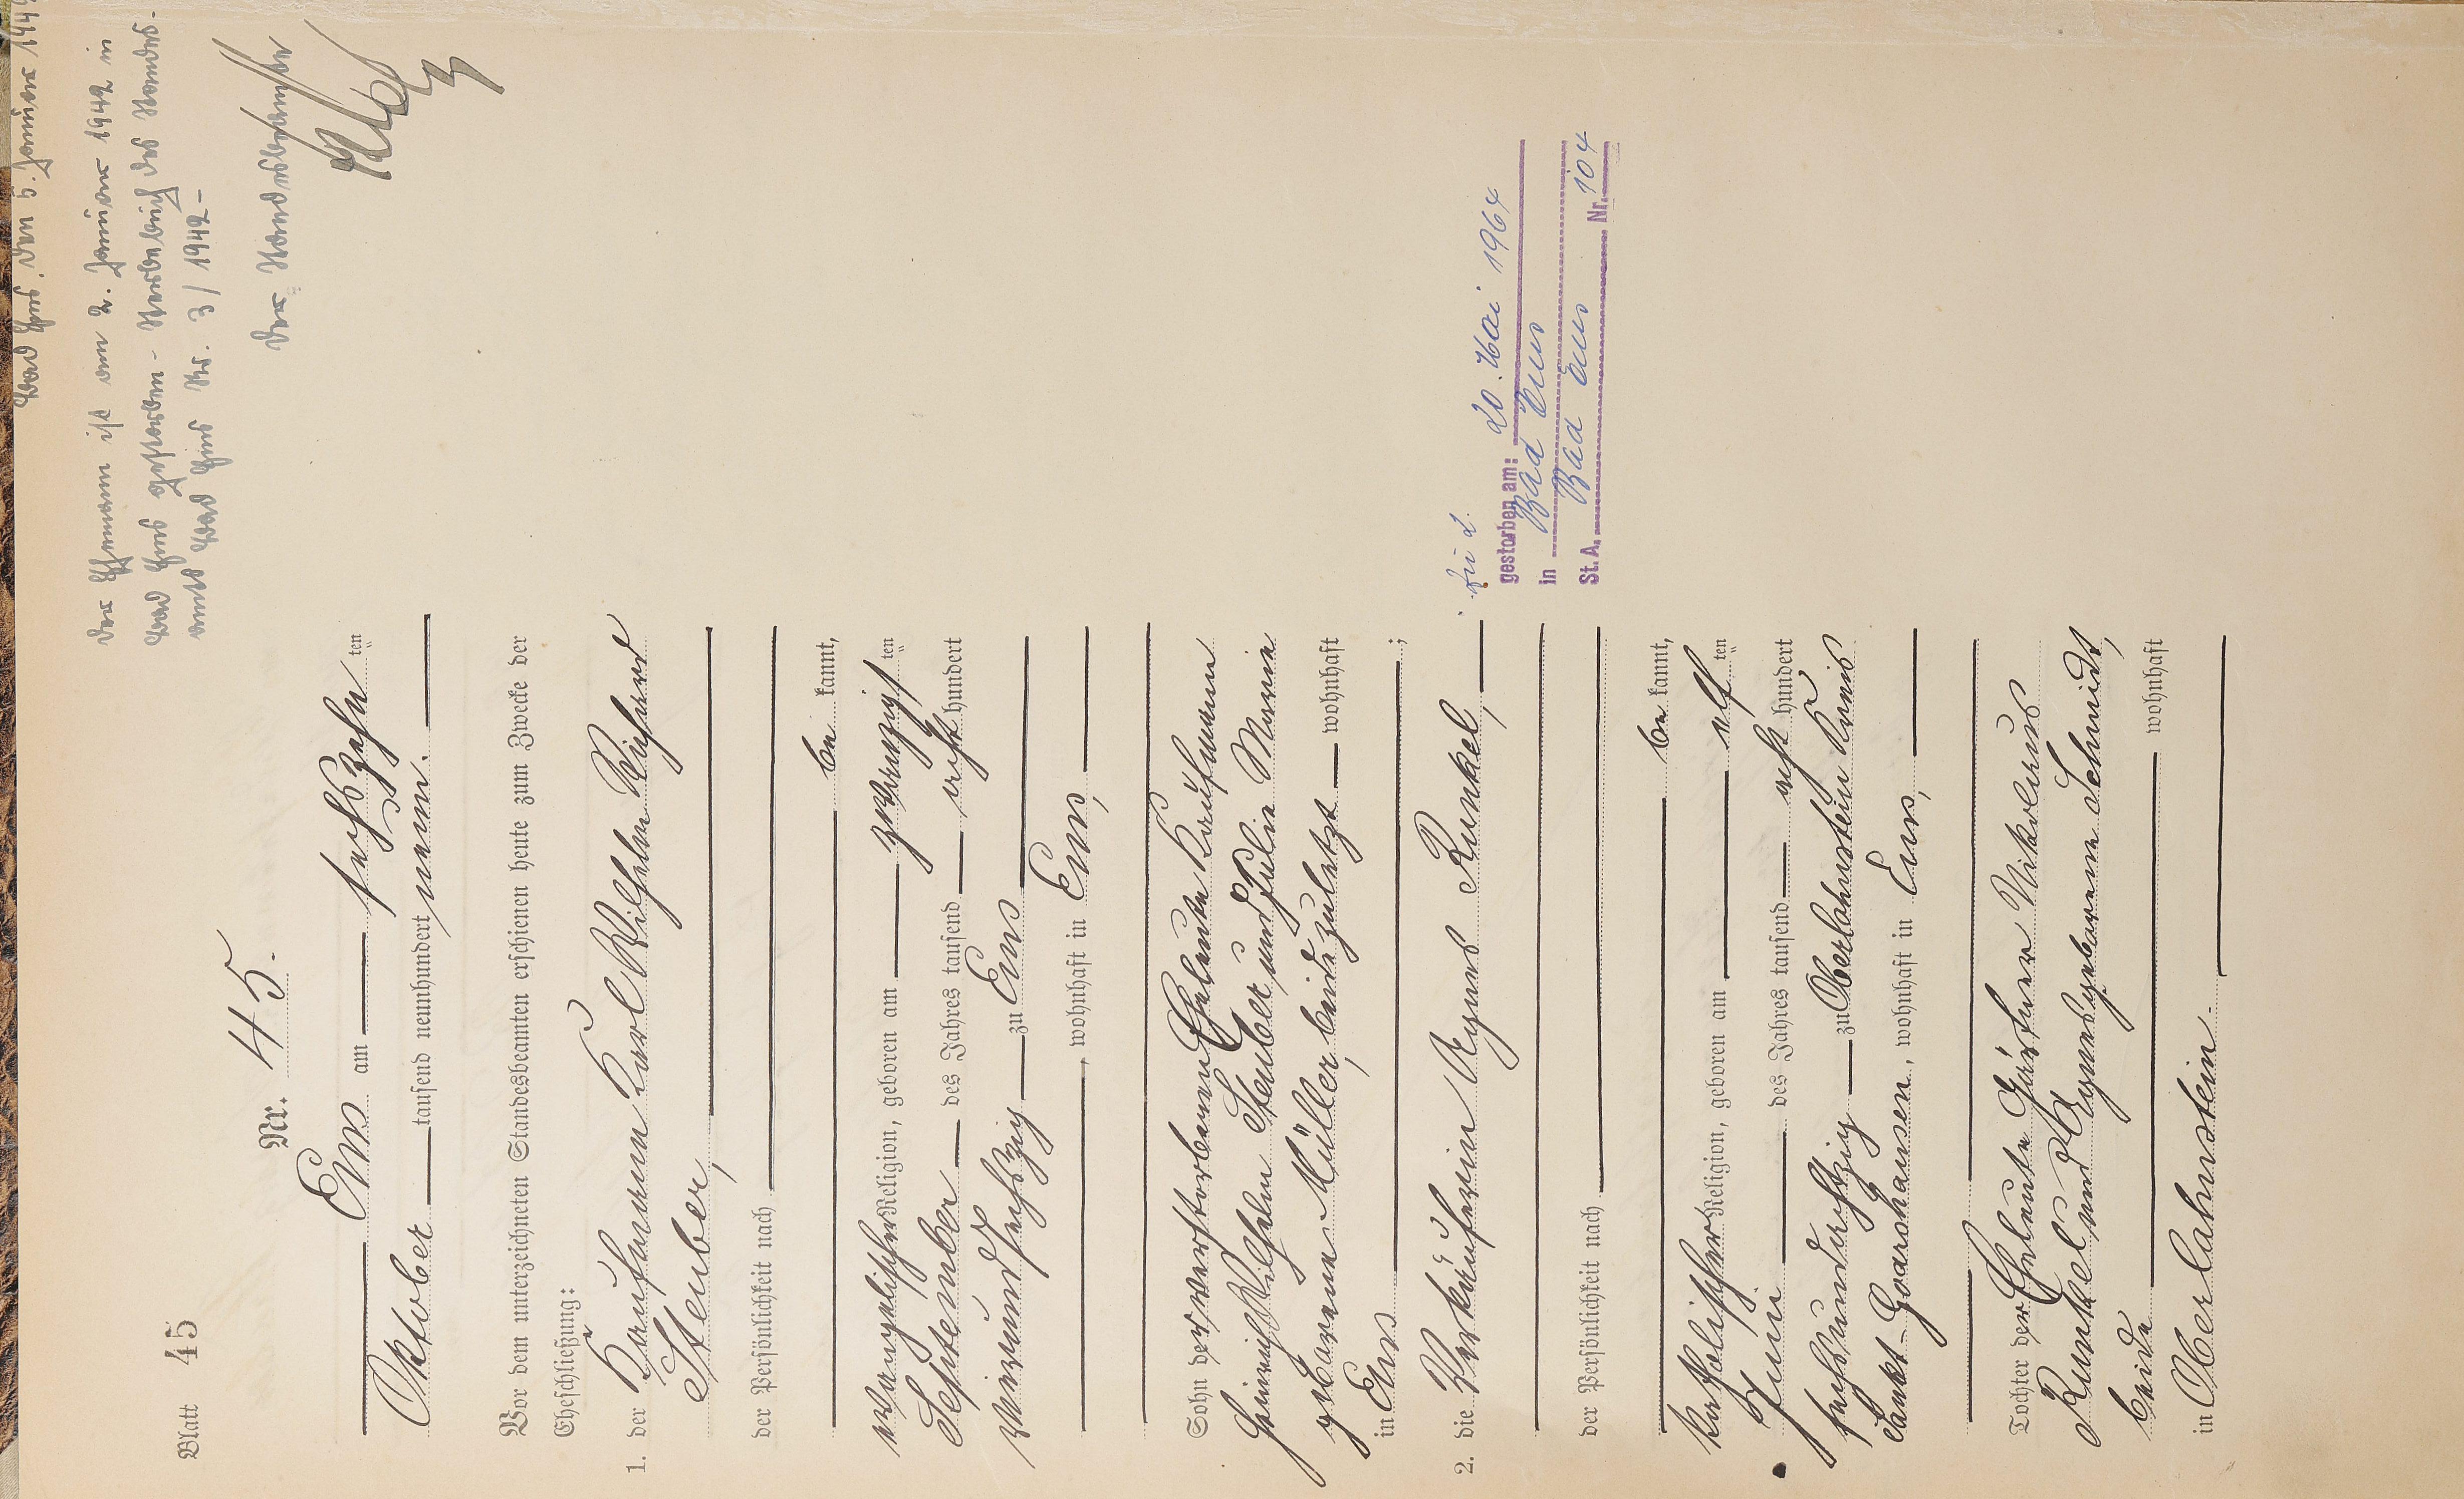 Blatt 45
Nr. 45.
Ems am sechszehn ten
Oktober tausend neunhundert neun.
Vor dem unterzeichneten Standesbeamten erschienen heute zum Zwecke der
Eheschließung:
1. der Kaufmann Karl Wilhelm Richard
Steuber,
der Persönlichkeit nach
be kannt,
evangelischer Religion, geboren am zwanzigs ten
September des Jahres tausend acht hundert
neunundsechszig zu Ems
, wohnhaft in Ems,
Sohn der verstorbenen Eheleute Kaufmann
Heinrich Wilhelm Steuber und Julie Marie
geborene Müller, beide zuletzt wohnhaft
in Ems ;
2. die Verkäuferin Agnes Runkel,
der Persönlichkeit nach
be kannt,
katholischer Religion, geboren am elf ten
Juni des Jahres tausend acht hundert
sechsundachtzig zu Oberlahnstein Kreis
Sankt Goarshausen, wohnhaft in Ems,
Tochter der Eheleute Gärtner Nikolaus
Runkel und Agnes geborene Schmidt,
beide wohnhaft
in Oberlahnstein.
Bad Ems, den 5. Januar 1942
Der Ehemann ist am 2. Januar 1942 in
Bad Ems gestorben - Sterbebuch des Standes-
amts Bad Ems Nr. 3/1942-
Der Standesbeamte
zu 2.
gestorben am: 20. Mai 1964
in Bad Ems
St. A. Bad Ems Nr. 104